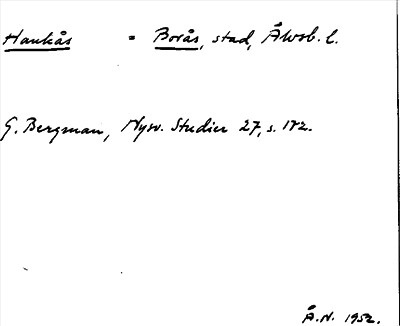 Hankås = Borås, stad, Älvsb. l.
G. Bergman, Nysv. Studier 27, s. 182.
Å.N. 1952.